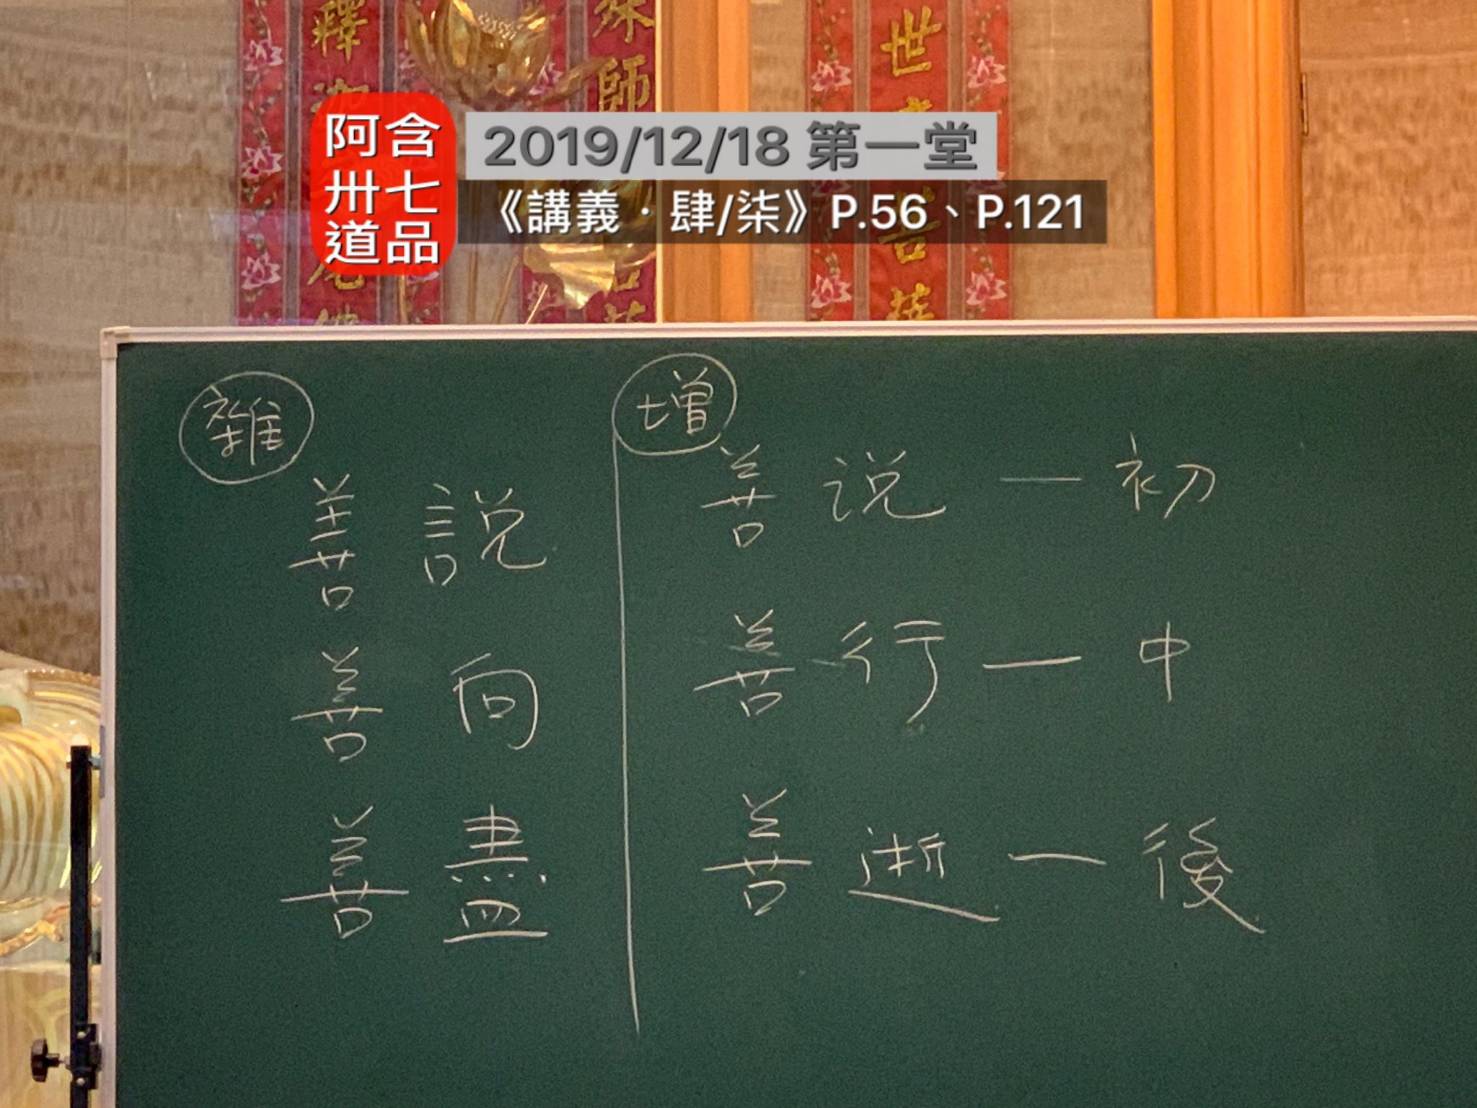 阿含
卅七
道品
2019/12/18 第一堂
《講義·肆/柒》P.56、P.121
釋
師
世
菩
雜
善說
善向
善盡
增
善说 — 初
善行 — 中
善逝 — 後